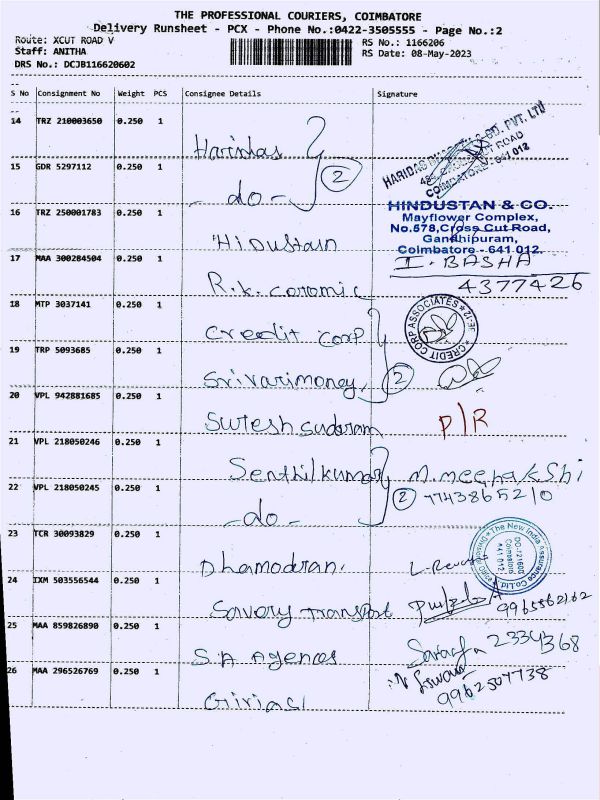 THE PROFESSIONAL COURIERS, COIMBATORE
Delivery Runsheet - PCX - Phone No.:0422-3505555 - Page No.:2
Route: XCUT ROAD V
Staff: ANITHA
DRS No.: DCJB116620602
RS No.: 1166206
RS Date: 08-May-2023
S No Consignment No Weight PCS Consignee Details Signature
14 TRZ 210003650 0.250 1
Haridas
HARIDAS CO. PVT. LTD
ROAD
COIMBATORE - 641 012
15 GDR 5297112 0.250 1
- do - 2
16 TRZ 250001783 0.250 1
Hindustain
HINDUSTAN & CO.
Mayflower Complex,
No.578,Cross Cut Road,
Gandhipuram,
Coimbatore - 641 012.
17 MAA 300284504 0.250 1
R.k. ceromic
I. BASHA
4377426
18 MTP 3037141 0.250 1
Credit Corp
CREDIT CORP ASSOCIATES
19 TRP 5093685 0.250 1
Srivarimoney, 2
20 VPL 942881685 0.250 1
Suresh sudaram
P/R
21 VPL 218050246 0.250 1
Senthilkumar
M. meenakshi
7743865210
22 VPL 218050245 0.250 1
- do - 2
23 TCR 30093829 0.250 1
Dhamodran.
The New India Assurance Co. Ltd
Coimbatore
641 012
24 IXM 503556544 0.250 1
Savory Transport
9965862162
25 MAA 859826890 0.250 1
S.A Agences
2334368
26 MAA 296526769 0.250 1
Girias
9962507738